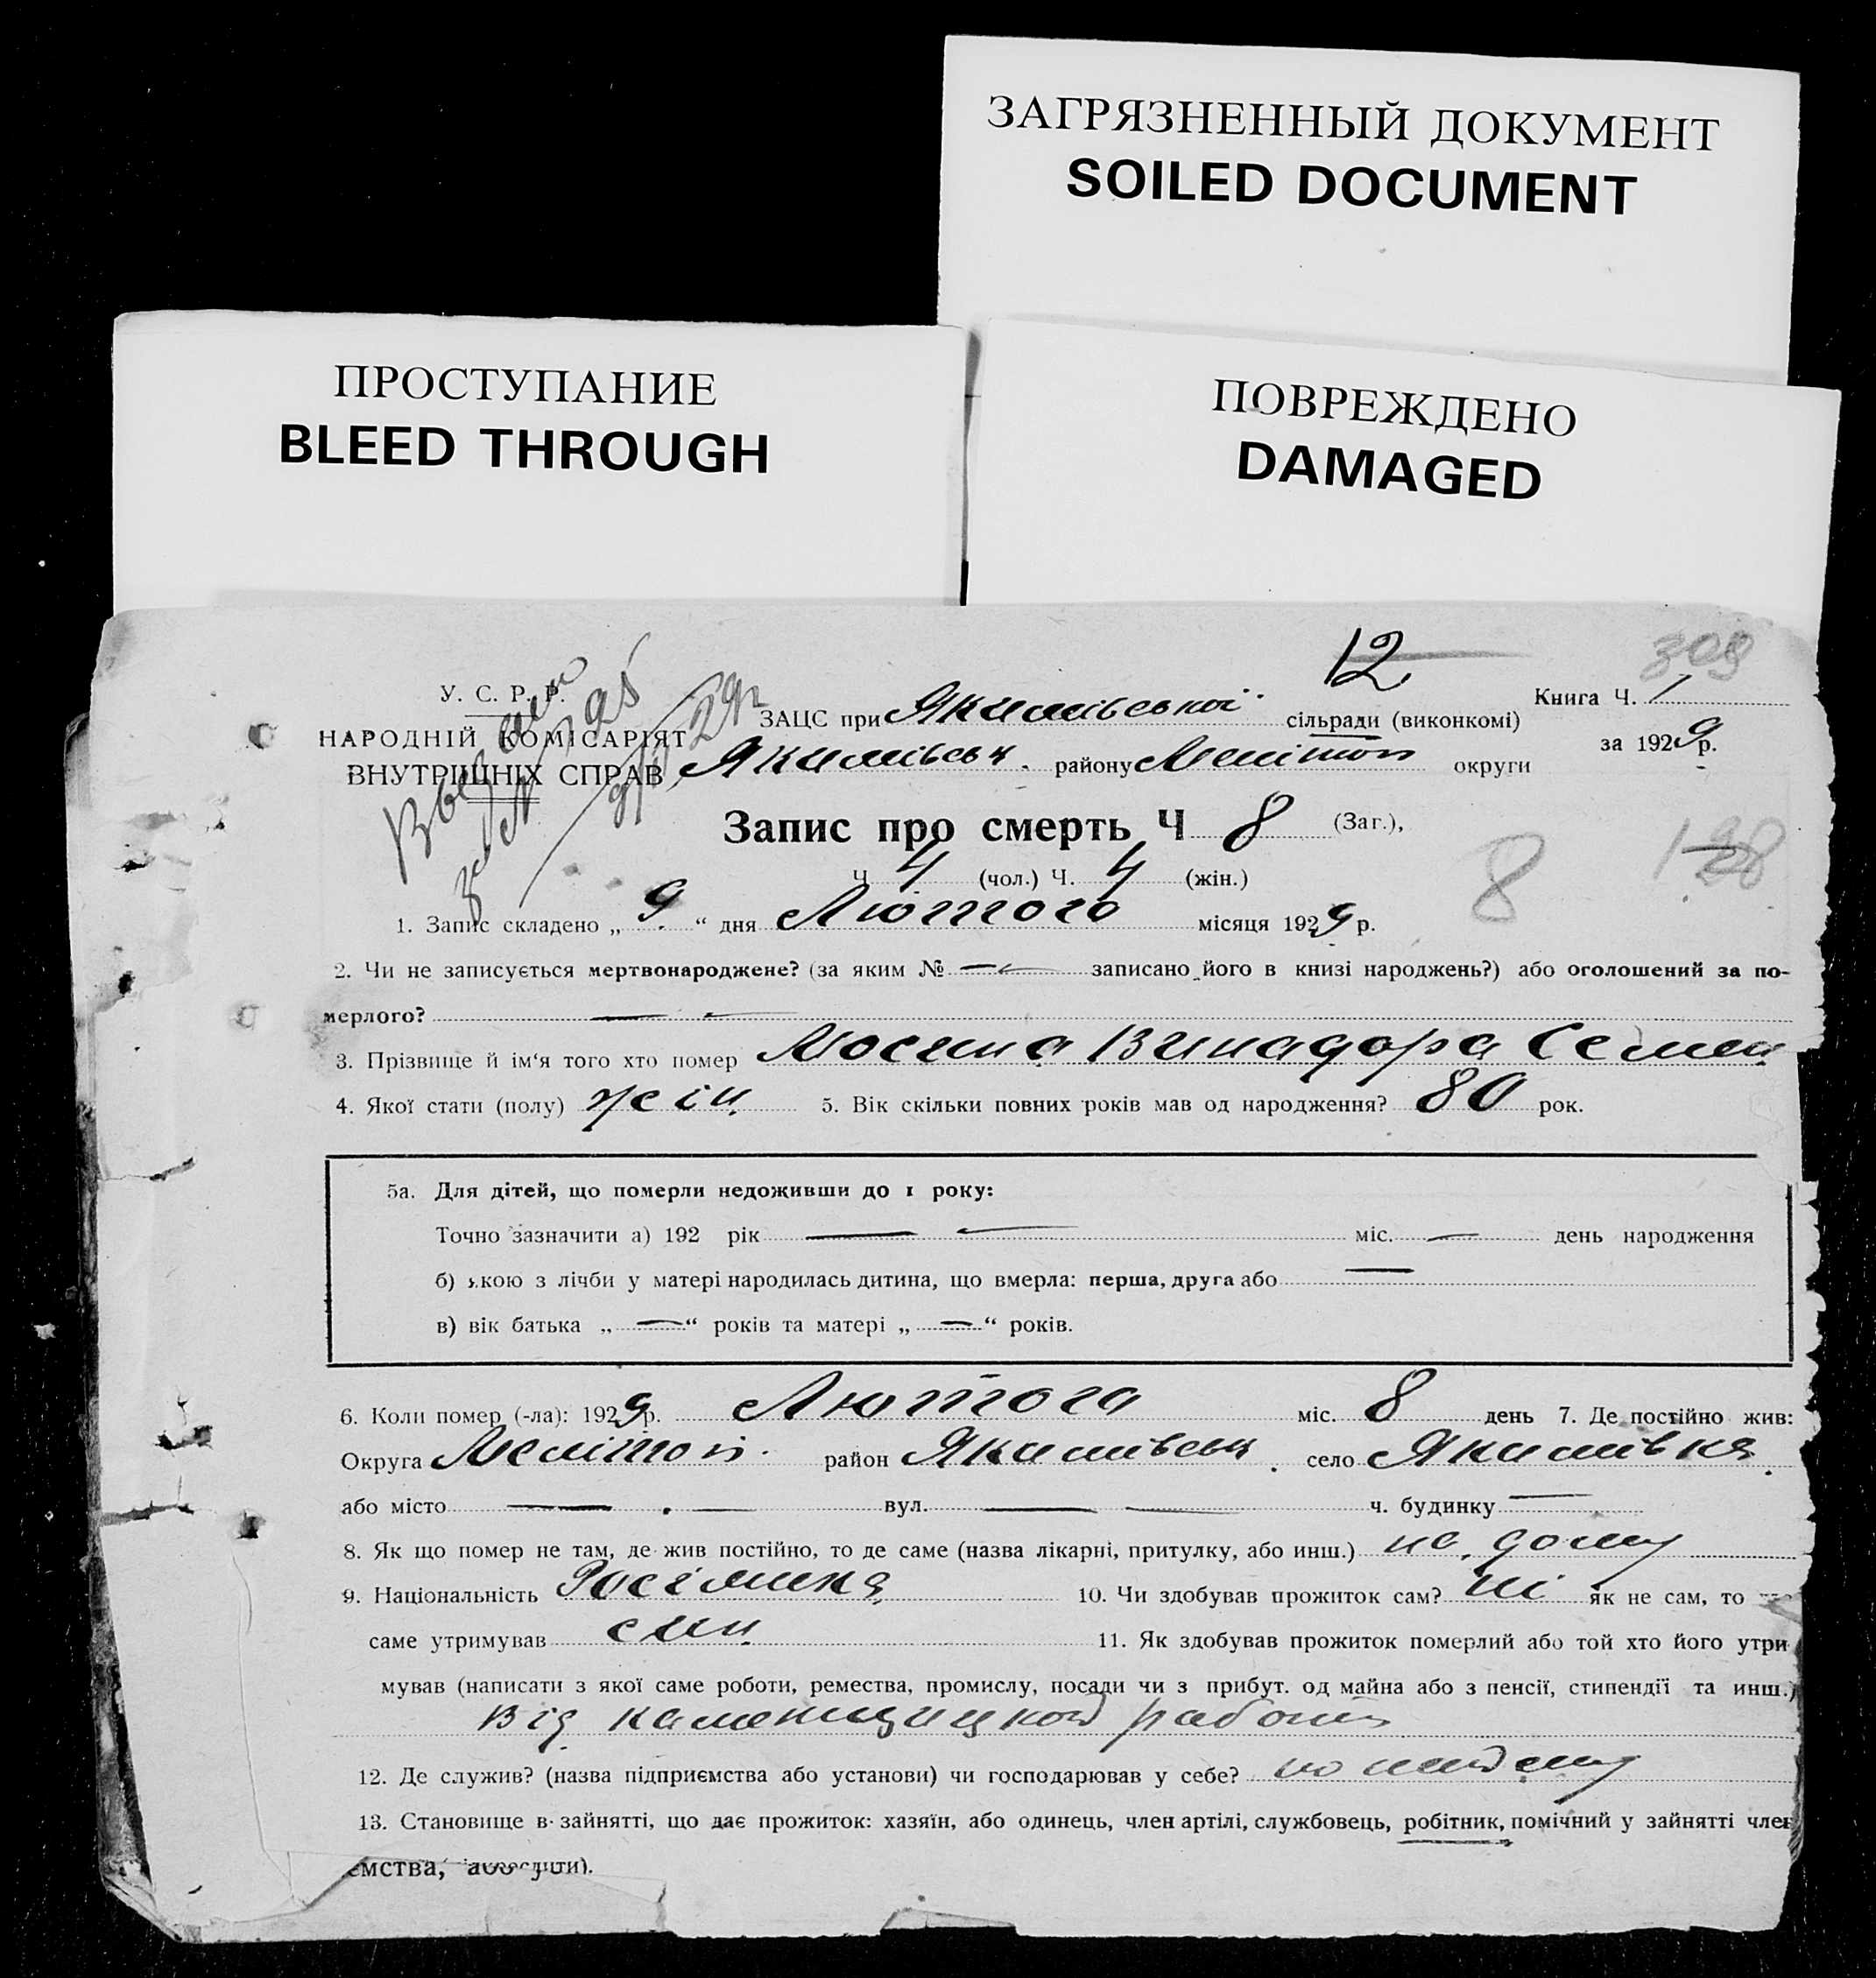 ЗАГРЯЗНЕННЫЙ ДОКУМЕНТ
SOILED DOCUMENT
ПРОСТУПАНИЕ
BLEED THROUGH
ПОВРЕЖДЕНО
DAMAGED
12
309
У. С. Р. Р.
НАРОДНІЙ КОМІСАРІЯТ
ВНУТРІШНІХ СПРАВ
ЗАЦС при Якимівської сільради (виконкомі)
Книга Ч. 1
Якимівськ. району Мелітоп округи
за 1929 р.
Запис про смерть Ч 8 (Заг.),
Ч 4 (чол.) Ч. 4 (жін.)
8
1. Запис складено „ 9 “ дня Лютого місяця 1929 р.
2. Чи не записується мертвонароджене? (за яким № — записано його в книзі народжень?) або оголошений за по-
мерлого? —
3. Прізвище й ім‘я того хто помер Семен
4. Якої стати (полу) жін. 5. Вік скільки повних років мав од народження? 80 рок.
5а. Для дітей, що померли недоживши до 1 року:
Точно зазначити а) 192 рік — — міс. — день народження
б) якою з лічби у матері народилась дитина, що вмерла: перша, друга або —
в) вік батька „ — “ років та матері „ — “ років.
6. Коли помер (-ла): 1929 р. Лютого міс. 8 день 7. Де постійно жив:
Округа Мелітоп. район Якимівськ. село Якимівка.
або місто — — вул. — — ч. будинку —
8. Як що помер не там, де жив постійно, то де саме (назва лікарні, притулку, або инш.) на дому
9. Національність Росіянка 10. Чи здобував прожиток сам? ні як не сам, то
саме утримував син 11. Як здобував прожиток померлий або той хто його утри
мував (написати з якої саме роботи, ремества, промислу, посади чи з прибут. од майна або з пенсії, стипендії та инш.)
Від работи
12. Де служив? (назва підприємства або установи) чи господарював у себе? по найому
13. Становище в зайнятті, що дає прожиток: хазяїн, або одинець, член артілі, службовець, робітник, помічний у зайнятті член